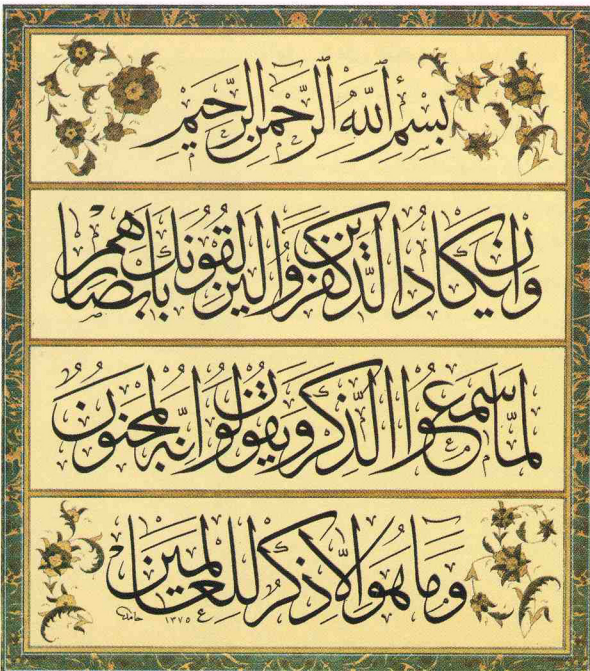 بِسْمِ اللّٰهِ الرَّحْمٰنِ الرَّحِيمِ
وَاِنْ يَكَادُ الَّذِينَ كَفَرُوا لَيُزْلِقُونَكَ بِاَبْصَارِهِمْ
لَمَّا سَمِعُوا الذِّكْرَ وَيَقُولُونَ اِنَّهُ لَمَجْنُونٌ
وَمَا هُوَ اِلَّا ذِكْرٌ لِلْعَالَمِينَ
حامد ١٣٧٥